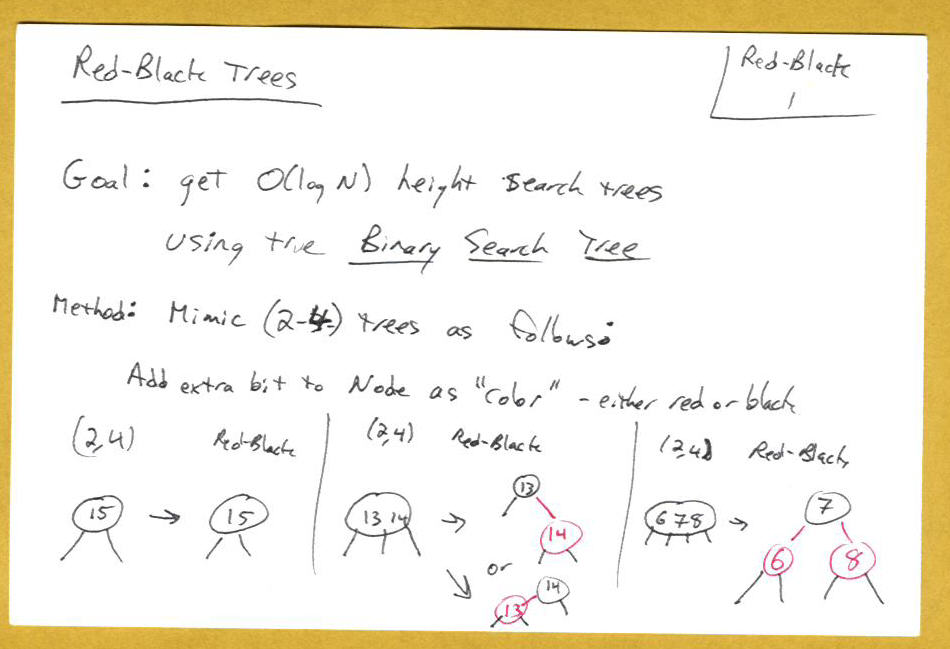 Red-Black Trees
Red-Black
1
Goal: get O(log N) height search trees
using true Binary Search Tree
Method: Mimic (2-4) trees as follows:
Add extra bit to Node as "color" - either red or black
(2,4) Red-Black
(2,4) Red-Black
(2,4) Red-Black
15 → 15
13 14 → 13
14
or
13 14
6 7 8 → 7
6 8